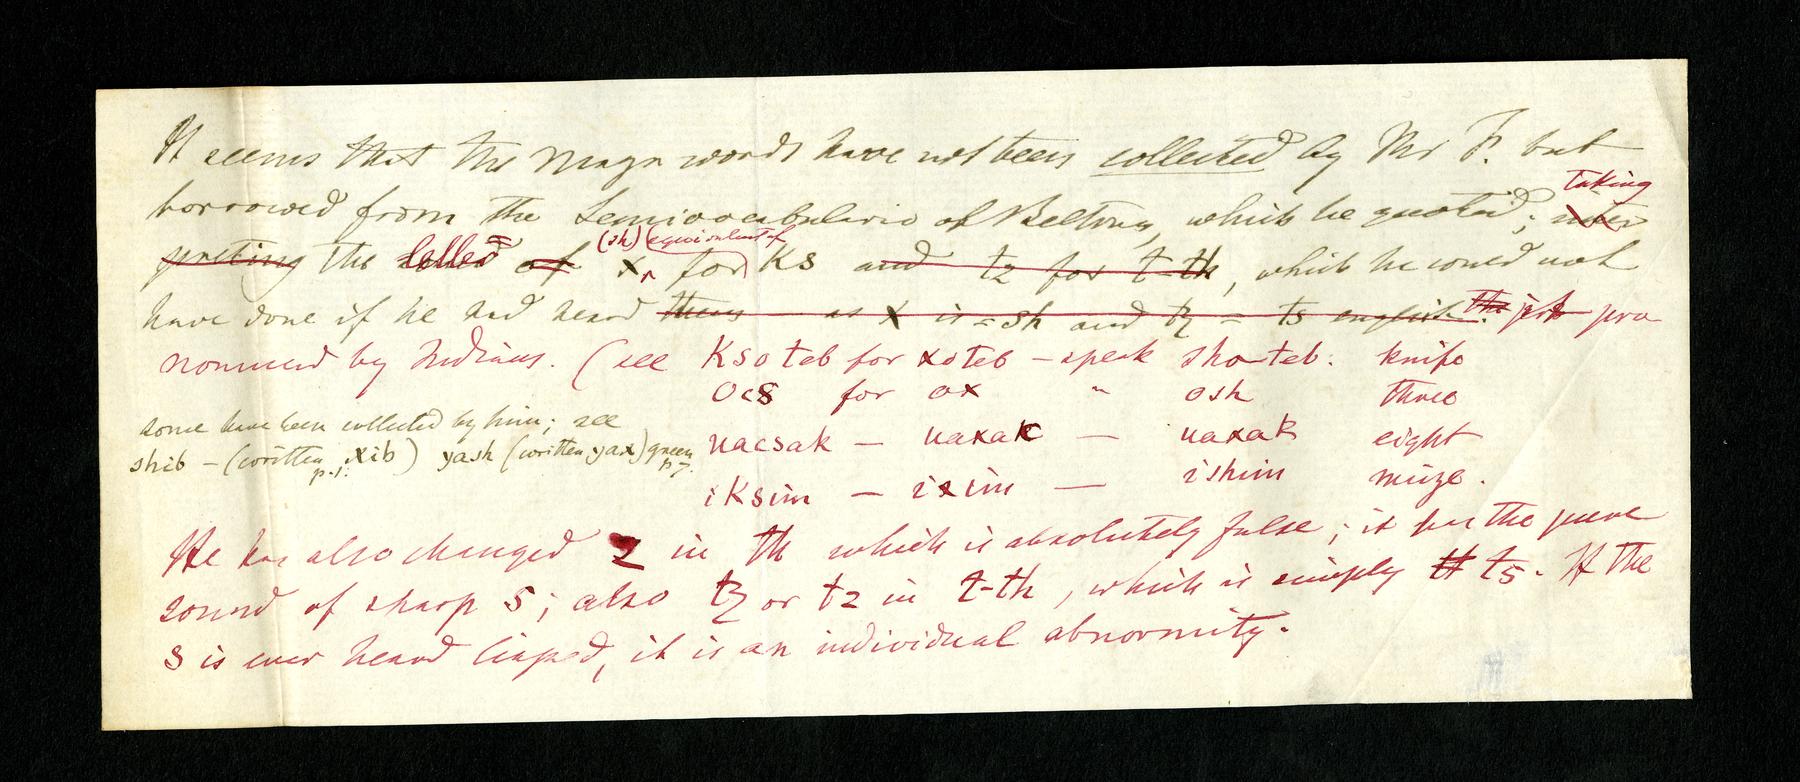 It seems that the Maya words have not been collected by Mr F. but
borrowed from the Semivocabulario of Beltran, which he quoted; inter taking
preting the letter of x (sh) (equivalent of for) Ks and tz for t-th, which he would not
have done if he had heard them as x is = sh and tz = ts english. the just pro
nounced by Indians. (see Ksoteb for xoteb – speak shoteb: knife
ocs for ox " osh three
some have been collected by him; see
uacsak – uaxak – uaxak eight
shib – (written p.1. xib) yash (written yax) green p 7.
iKsim – ixim – ishim maize.
He has also changed z in th which is absolutely false; it has the pure
sound of sharp s; also tz or tz in t-th, which is simply tt ts. If the
s is ever heard lisped, it is an individual abnormity.